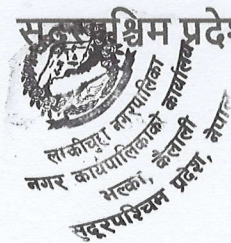 सुदूरपश्चिम प्रदे
लम्कीचुहा नगरपालिका
नगर कार्यपालिकाको कार्यालय
भल्का, कैलाली
सुदूरपश्चिम प्रदेश, नेपाल